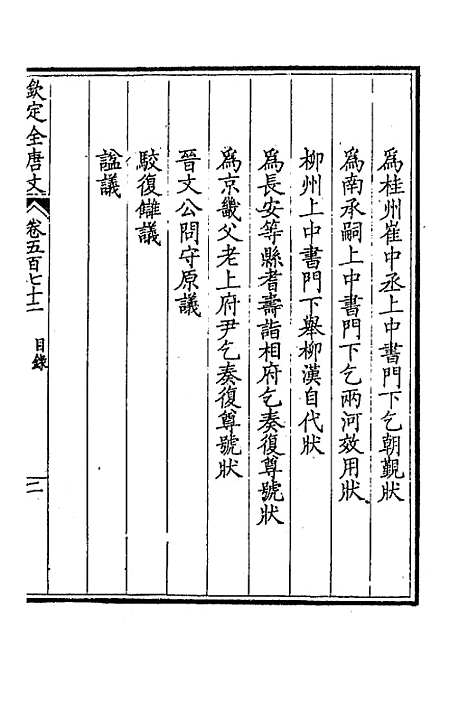 爲桂州崔中丞上中書門下乞朝覲狀
爲南承嗣上中書門下乞兩河效用狀
柳州上中書門下舉柳漢自代狀
爲長安等縣耆壽詣相府乞奏復尊號狀
爲京畿父老上府尹乞奏復尊號狀
晉文公問守原議
駮復讎議
諡議
欽定全唐文
卷五百七十二
目錄
二